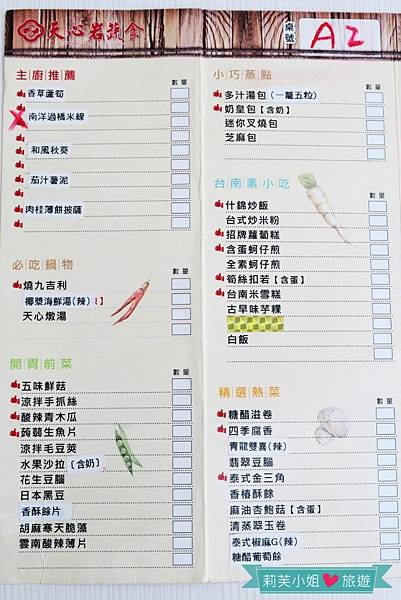 天心岩蔬食
桌號
A2
主廚推薦
數量
香草蘆筍
南洋過橋米線
和風秋葵
茄汁薯泥
肉桂薄餅披薩
必吃鍋物
數量
燒九吉利
椰漿海鮮湯(辣)
天心燉湯
開胃前菜
數量
五味鮮菇
涼拌手抓絲
酸辣青木瓜
蒟蒻生魚片
涼拌毛豆莢
水果沙拉【含奶】
花生豆腐
日本黑豆
香酥餘片
胡麻寒天脆藻
雲南酸辣薄片
小巧蒸點
數量
多汁湯包(一籠五粒)
奶皇包【含奶】
迷你叉燒包
芝麻包
台南素小吃
數量
什錦炒飯
台式炒米粉
招牌蘿蔔糕
含蛋蚵仔煎
全素蚵仔煎
筍絲扣若【含蛋】
台南米雪糕
古早味芋粿
白飯
精選熱菜
數量
糖醋滋卷
四季腐香
青龍雙喜(辣)
翡翠豆腐
泰式金三角
香椿酥餘
麻油杏鮑菇【含蛋】
清蒸翠玉卷
泰式椒麻G(辣)
糖醋葡萄餘
莉芙小姐❤旅遊